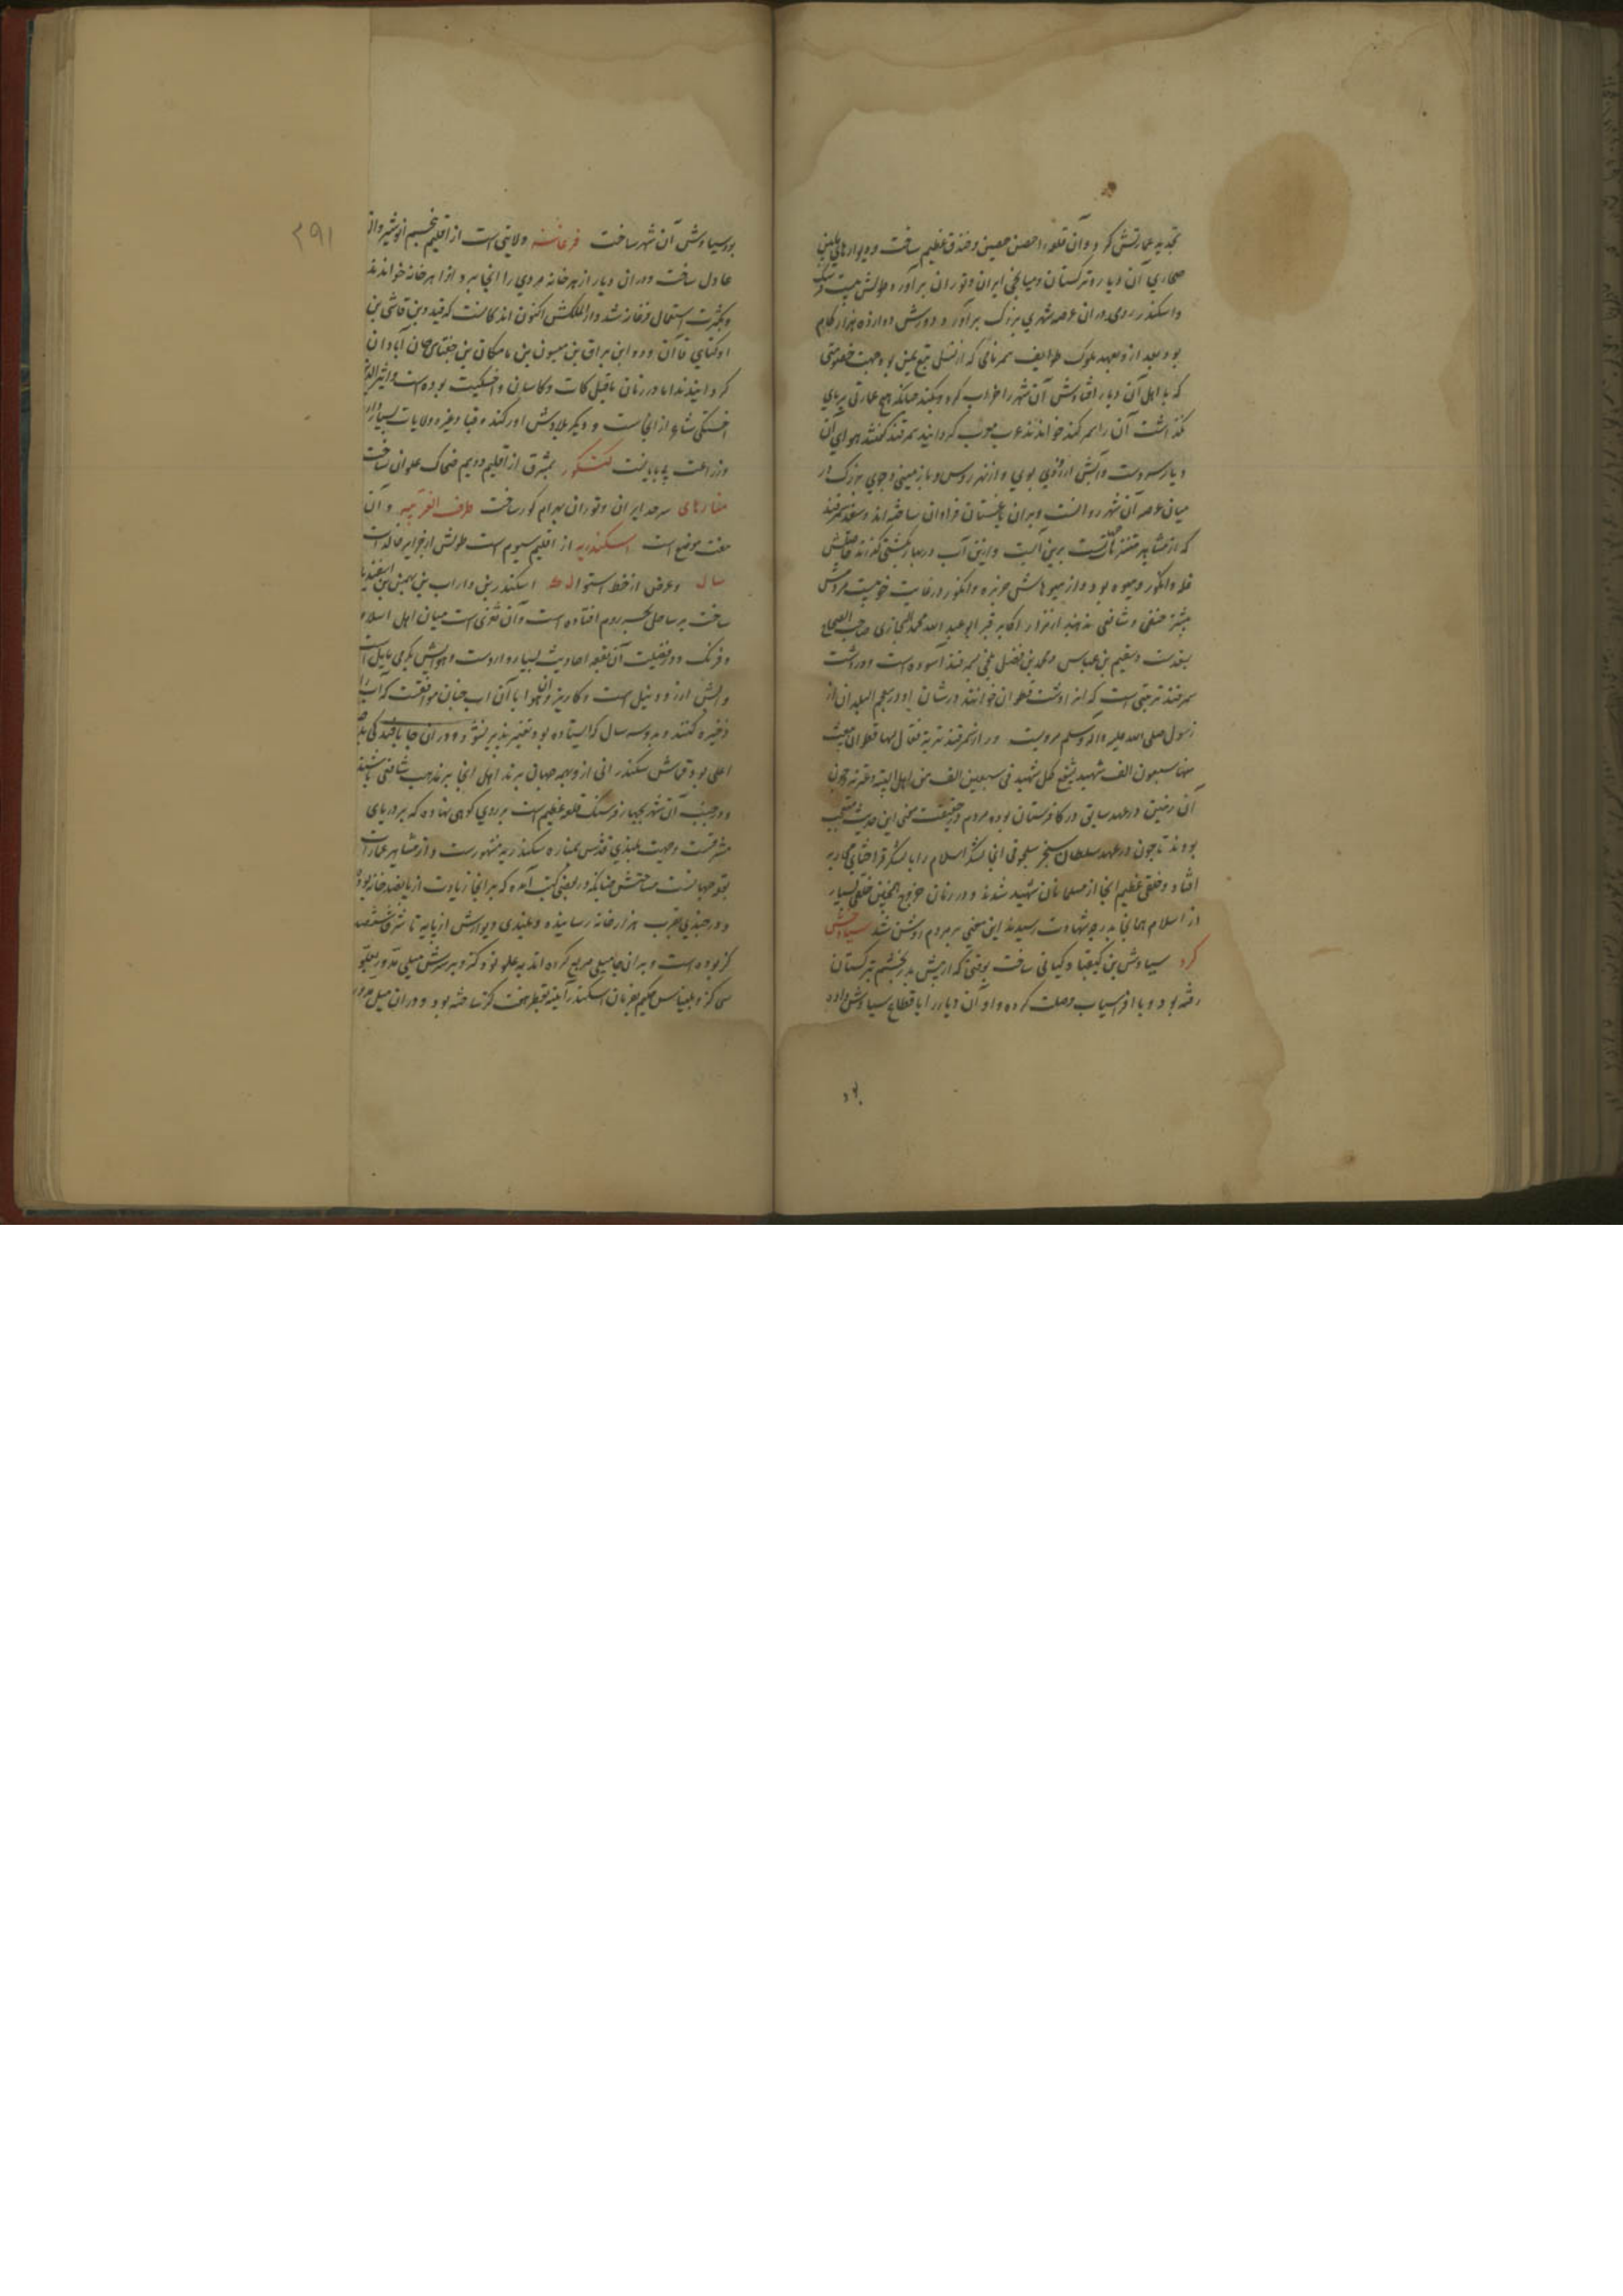 تجدید عمارتش کرد و آن قلعه را حصن حصین و خندق عظیم ساخت و دیوارهای مابین
صحاری آن دیار و ترکستان و میانجی ایران و توران برآورد طولش بیست فرسنگ
و اسکندر رومی در آن عرصه شهری بزرگ برآورد و دورش دوازده هزار گام
بود بعد ازو بعهد ملوک طوایف سمر نامی که از نسل تبع یمن بود جهت خصومتی
که با اهل آن دیار افتادش آن شهر را خراب کرد و بکند چنانکه هیچ عمارتی برپای
نگذاشت آن را سمرکند خواندند عرب معرب گردانید سمرقند گفتند هوای آن
دیار سردست و آبش از وی و از نهر بزرگ در
میان عرصه آن شهر روانست و بران باغستان فراوان ساخته اند و سغد سمرقند
که از مشاهیر متنزهاتست برین آبست و ازین آب در بهار بکشتی گذرند حاصلش
غله و انگور و میوه بود و از میوهاش خربزه و انگور در غایت خوبیست مردمش
بیشتر حنفی و شافعی مذهبند از مزار اکابر قبر ابو عبد الله محمد البخاری صاحب الصحاح
بغدست و قثم بن عباس و محمد بن فضل بلخی بسمرقند آسوده است و در دشت
سمرقند تربتی است که انرا دشت قطوان خوانند در شان او در معجم البلدان از
رسول صلی الله علیه و اله و سلم مرویست ورا سمرقند تربة یقال لها قطوان یبعث
منها سبعون الف شهید یشفع کل شهید فی سبعین الف من اهل البیته و عترته و چون
آن زمین در عهد سابق در کافرستان بوده مردم در حقیقت معنی این حدیث متعجب
بودند تا چون در عهد سلطان سنجر سلجوقی انجا لشکر اسلام را با لشکر قراختای محاربه
افتاد و خلقی عظیم انجا از مسلمانان شهید شدند و در زمان خروج همچنین خلقی بسیار
از اسلام همانجا بدرجه شهادت رسیدند این معنی بر مردم روشن شد سیاوخش
کرد سیاوش بن کیقباد کیانی ساخت بوقتی که از پیش پدر بخشم بترکستان
رفته بود و با افراسیاب وصلت کرده و او آن دیار را باقطاع سیاوش داده
بود سیاوش آن شهر ساخت فرغانه ولایتی است از اقلیم پنجم انوشیروان
عادل ساخت و دران دیار از هر خانه مردی را انجا برد و انرا هر خانه خواندند
و بکثرت استعمال فرغانه شد و دار الملکش اکنون اندکانست که قیدو بن قاشی بن
اوکتای قاآن و دوا بن براق بن بن مامکان بن جغتای خان آبادان
گردانیدند اما در زمان ماقبل کات و کاسان و اخسیکت بوده است و اثیر الدین
اخسیکتی شاعر از انجاست و دیگر بلادش اورکند و قبا و غیره ولایات بسیار
و زراعت بی پایانست گنگ بمشرق از اقلیم دویم ضحاک علوان ساخت
منارهای سرحد ایران و توران بهرام گور ساخت طرف الغربیه و آن
هفت موضع است اسکندریه از اقلیم سیوم است طولش از جزایر خالدات
سال و عرض از خط استوا ل ط اسکندر بن داراب بن بهمن بن اسفندیار
ساخت بر ساحل بحر روم افتاده است و آن ثغری است میان اهل اسلام
و فرنگ و در فضیلت آن بقعه احادیث بسیار واردست و هوایش بگرمی مایل است
و آبش از رود نیل است و کاریز و هوا با آن اب چنان موافقت که آب را
ذخیره کنند و بدو سه سال که ایستاده بود تغیر پذیر نشود و دران جا باقید کی
اعلی بود و قماش سکندرانی ازو بهمه جهان برند اهل انجا بر مذهب شافعی باشند
و در جنب آن شهر بچهار فرسنگ قلعه عظیم است بر روی کوهی نهاده که بر دریای
مشرفست و جهت بلندی بمناره سکندریه مشهورست و از مشاهیر عمارات
ربع آمده که بدانجا زیادت از پانصد خانه بود
و در بلندی بقرب هزار خانه رسانیده و بلندی دیوارش از پایه تا شرف ششصد
گز بوده است و بران جا میلی مربع کرده اند بعلو نود گز و بر سرش میلی مدور بعلو
سی گز و بلیناس حکیم بفرمان اسکندر آینه بقطر هفت گز ساخته بود و دران میل مدور